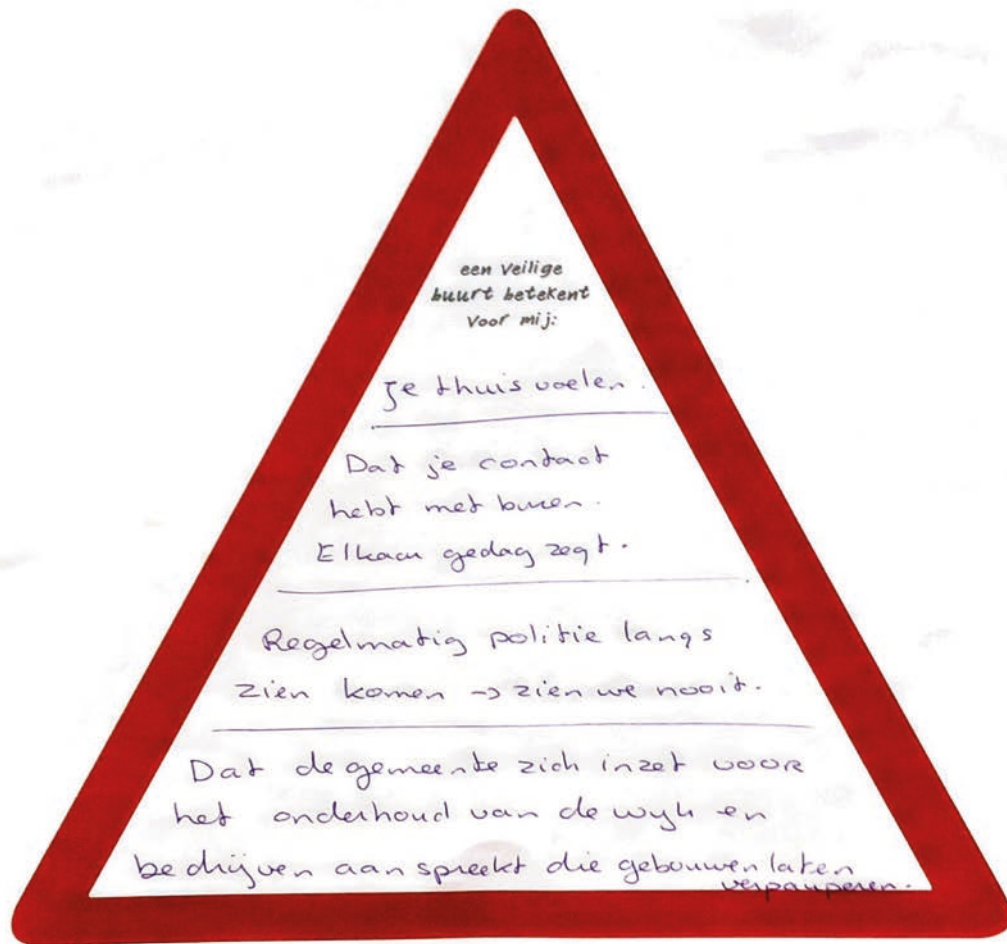 een veilige
buurt betekent
voor mij:
Je thuis voelen.
Dat je contact
hebt met buren.
Elkaar gedag zegt.
Regelmatig politie langs
zien komen → zien we nooit.
Dat de gemeente zich inzet voor
het onderhoud van de wijk en
bedrijven aanspreekt die gebouwen laten
verpauperen.